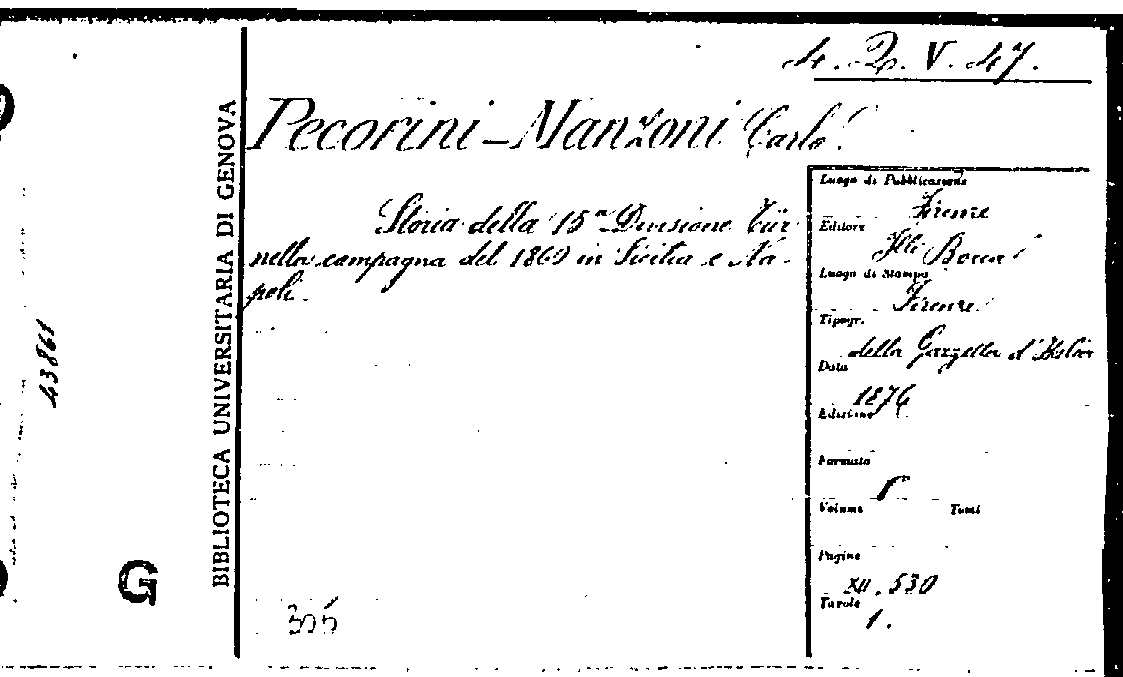 4. 2. V. 47.
Pecorini-Manzoni Carlo.
Storia della 15ª Divisione Tür
nella campagna del 1860 in Sicilia e Na-
poli.
Luogo di Pubblicazione
Firenze
Editore
Flli Bocca
Luogo di Stampa
Firenze
Tipogr.
della Gazzetta d'Italia
Data
1876
Edizione
Formato
8
Volume Tomi
Pagine
XII. 530
Tavole
1.
BIBLIOTECA UNIVERSITARIA DI GENOVA
43861
G
305